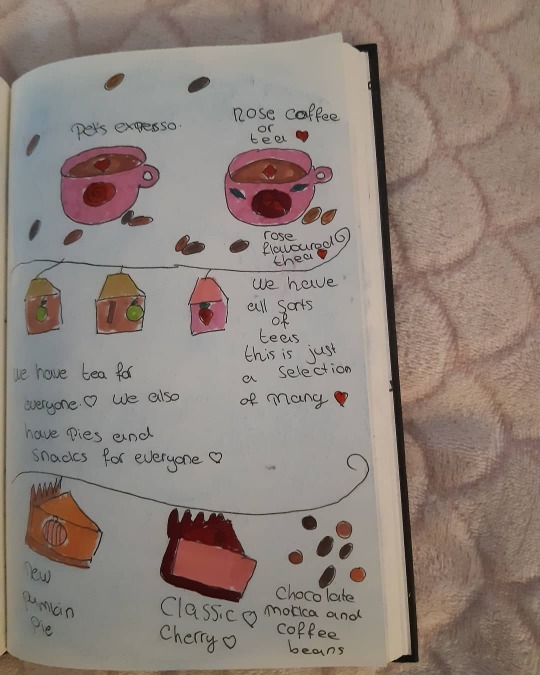 pets expresso.
Rose caffee
or
tea
rose
flavoured
thea
we have
all sorts
of
teas
this is just
a selection
of many
we have tea for
everyone. we also
have Pies and
snacks for everyone
new
pumkin
Pie
Classic
Cherry
Chocolate
mokka and
coffee
beans